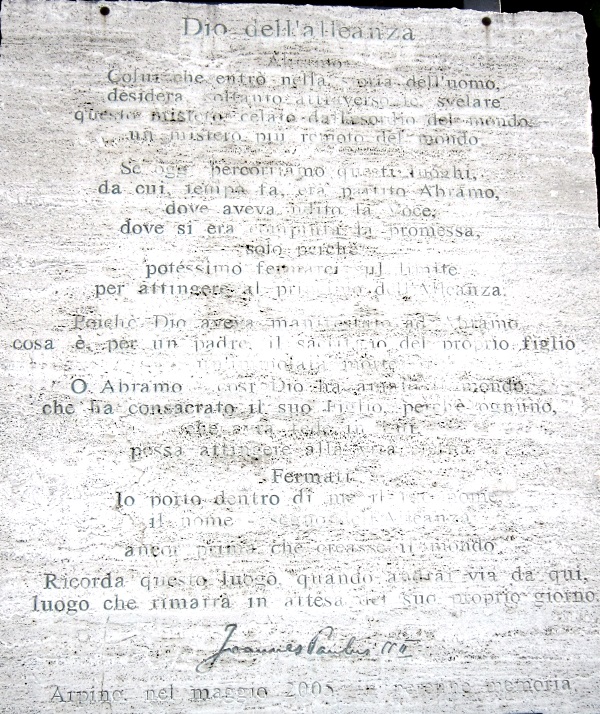 Dio dell'alleanza
Abramo
Colui che entrò nella storia dell'uomo,
desidera soltanto attraverso te svelare
questo mistero celato dal
un mistero più remoto del mondo
Se oggi percorriamo questi luoghi,
da cui, tempo fa, era partito Abramo,
dove aveva udito la Voce,
dove si era compiuta la promessa,
solo perchè
potessimo fermarci sul limite
per attingere al dell'Alleanza.
Poichè Dio aveva manifestato ad Abramo
cosa è, per un padre, il sacrificio del proprio figlio
O Abramo così Dio ha amato il mondo,
che ha consacrato il suo Figlio, perchè ognuno,
possa attingere alla
Fermati
Io porto dentro di me il tuo nome
il nome segno dell'Alleanza
ancor prima che creasse il mondo
Ricorda questo luogo, quando andrai via da qui,
luogo che rimarrà in attesa del suo proprio giorno.
Joannes Paulus PP II
Arpino, nel maggio 2005, memoria.